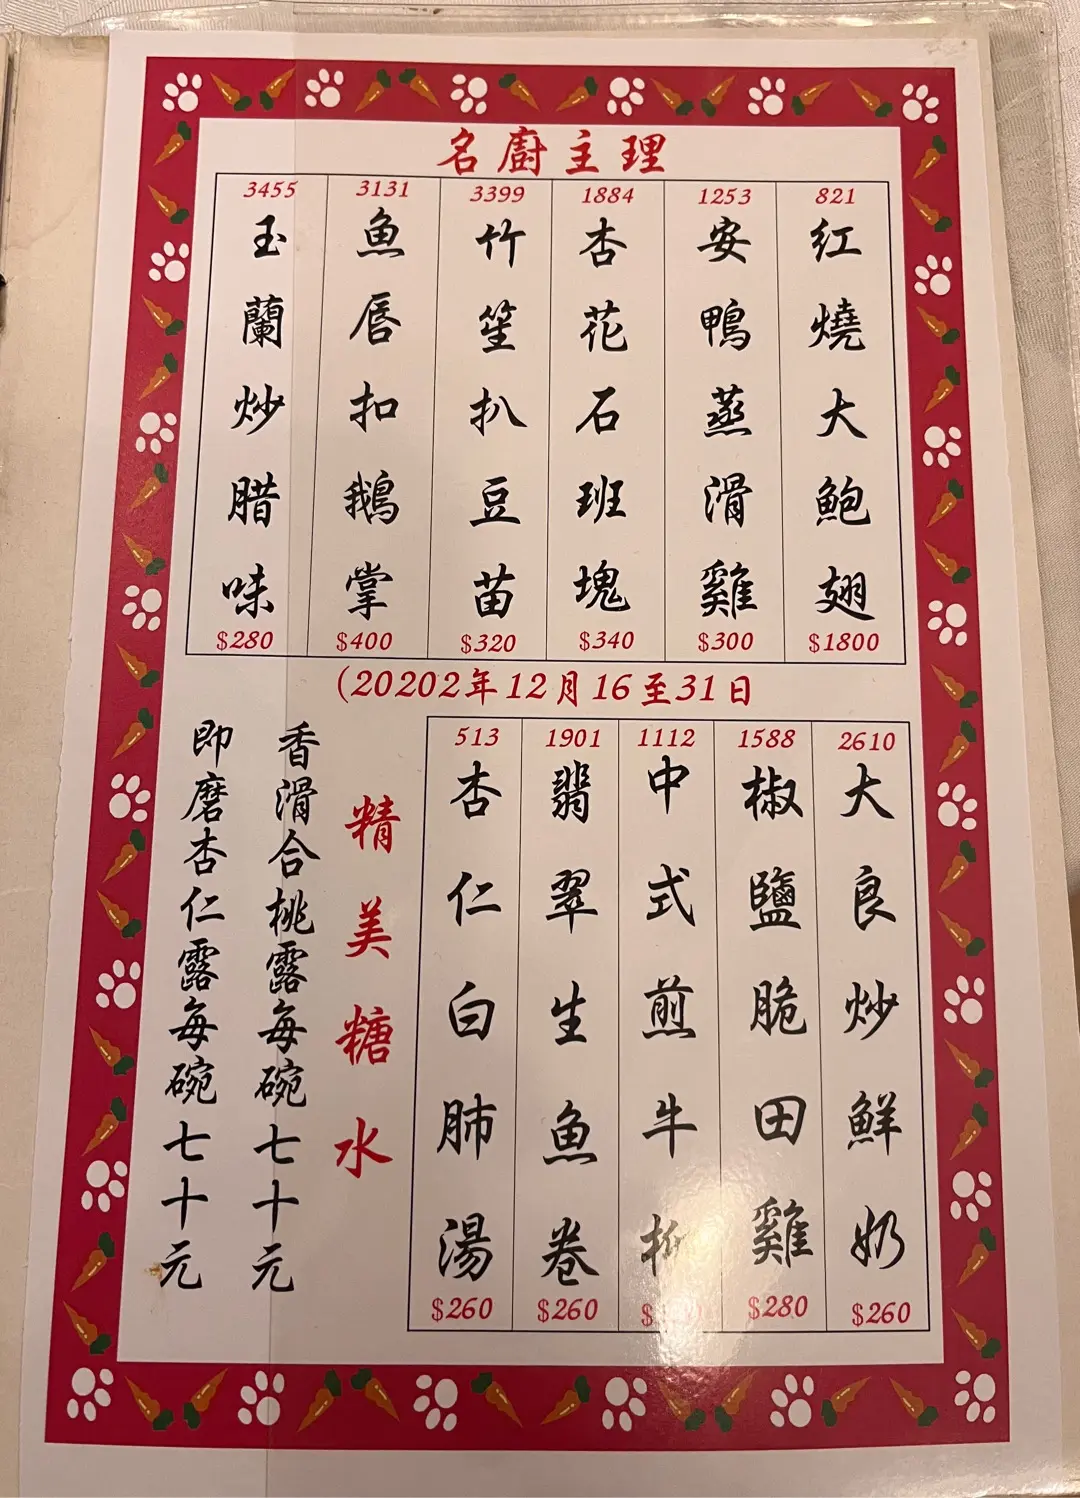 名廚主理
821
紅燒大鮑翅
$1800
1253
安鴨蒸滑雞
$300
1884
杏花石班塊
$340
3399
竹笙扒豆苗
$320
3131
魚唇扣鵝掌
$400
3455
玉蘭炒腊味
$280
(20202年12月16至31日
2610
大良炒鮮奶
$260
1588
椒鹽脆田雞
$280
1112
中式煎牛
1901
翡翠生魚卷
$260
513
杏仁白肺湯
$260
精美糖水
香滑合桃露每碗七十元
即磨杏仁露每碗七十元